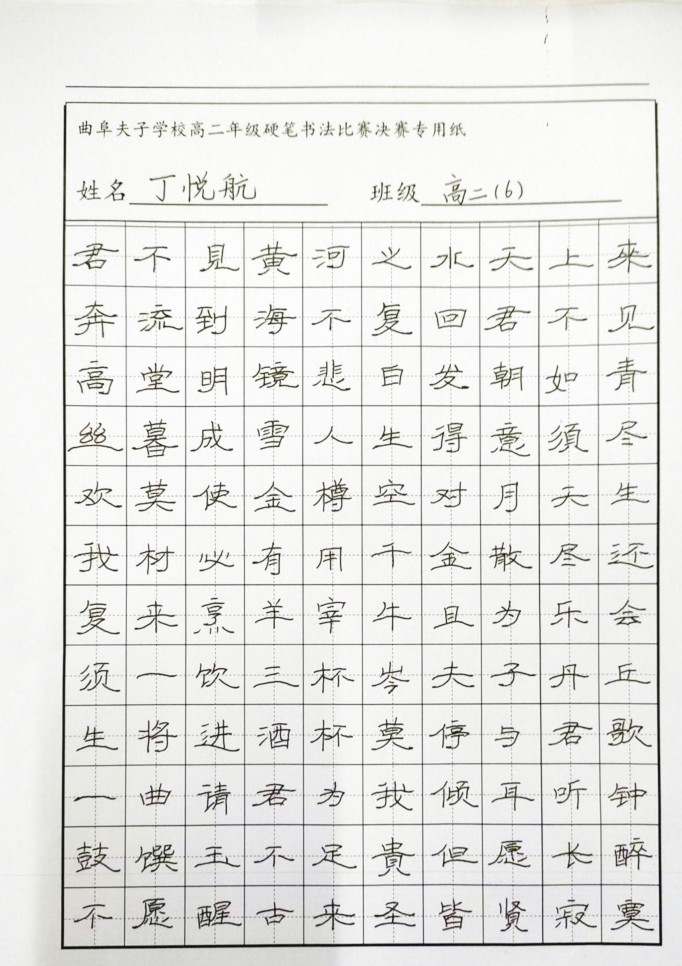 曲阜夫子学校高二年级硬笔书法比赛决赛专用纸
姓名 丁悦航 班级 高二(6)
君不見黄河之水天上來
奔流到海不复回君不见
高堂明镜悲白发朝如青
丝暮成雪人生得意須尽
欢莫使金樽空对月天生
我材必有用千金散尽还
复来烹羊宰牛且为乐会
须一饮三杯岑夫子丹丘
生将进酒杯莫停与君歌
一曲请君为我倾耳听钟
鼓馔玉不足貴但愿长醉
不愿醒古来圣皆贤寂寞